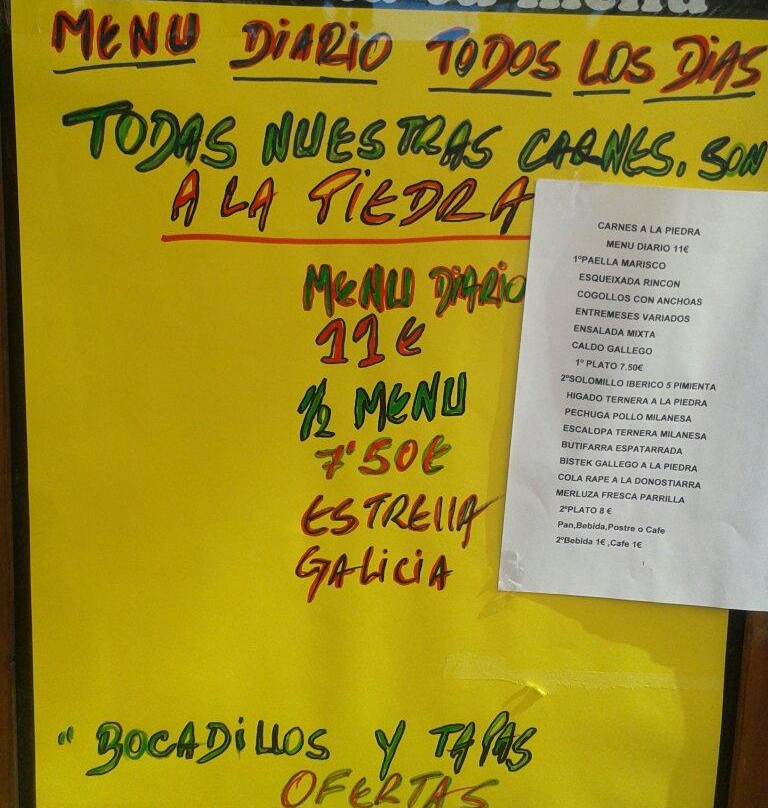 tu menu
MENU DIARIO TODOS LOS DIAS
TODAS NUESTRAS CARNES. SON
A LA PIEDRA
MENU DIARIO
11€
1/2 MENU
7'50€
ESTRELLA
GALICIA
" BOCADILLOS Y TAPAS
OFERTAS
CARNES A LA PIEDRA
MENU DIARIO 11€
1ºPAELLA MARISCO
ESQUEIXADA RINCON
COGOLLOS CON ANCHOAS
ENTREMESES VARIADOS
ENSALADA MIXTA
CALDO GALLEGO
1º PLATO 7.50€
2ºSOLOMILLO IBERICO 5 PIMIENTA
HIGADO TERNERA A LA PIEDRA
PECHUGA POLLO MILANESA
ESCALOPA TERNERA MILANESA
BUTIFARRA ESPATARRADA
BISTEK GALLEGO A LA PIEDRA
COLA RAPE A LA DONOSTIARRA
MERLUZA FRESCA PARRILLA
2ºPLATO 8 €
Pan,Bebida,Postre o Cafe
2ºBebida 1€ ,Cafe 1€